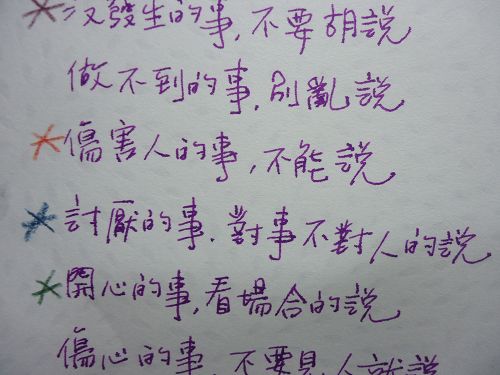 沒發生的事,不要胡說
做不到的事,別亂說
傷害人的事,不能說
討厭的事.對事不對人的說
開心的事,看場合的說
傷心的事 不要見人就說